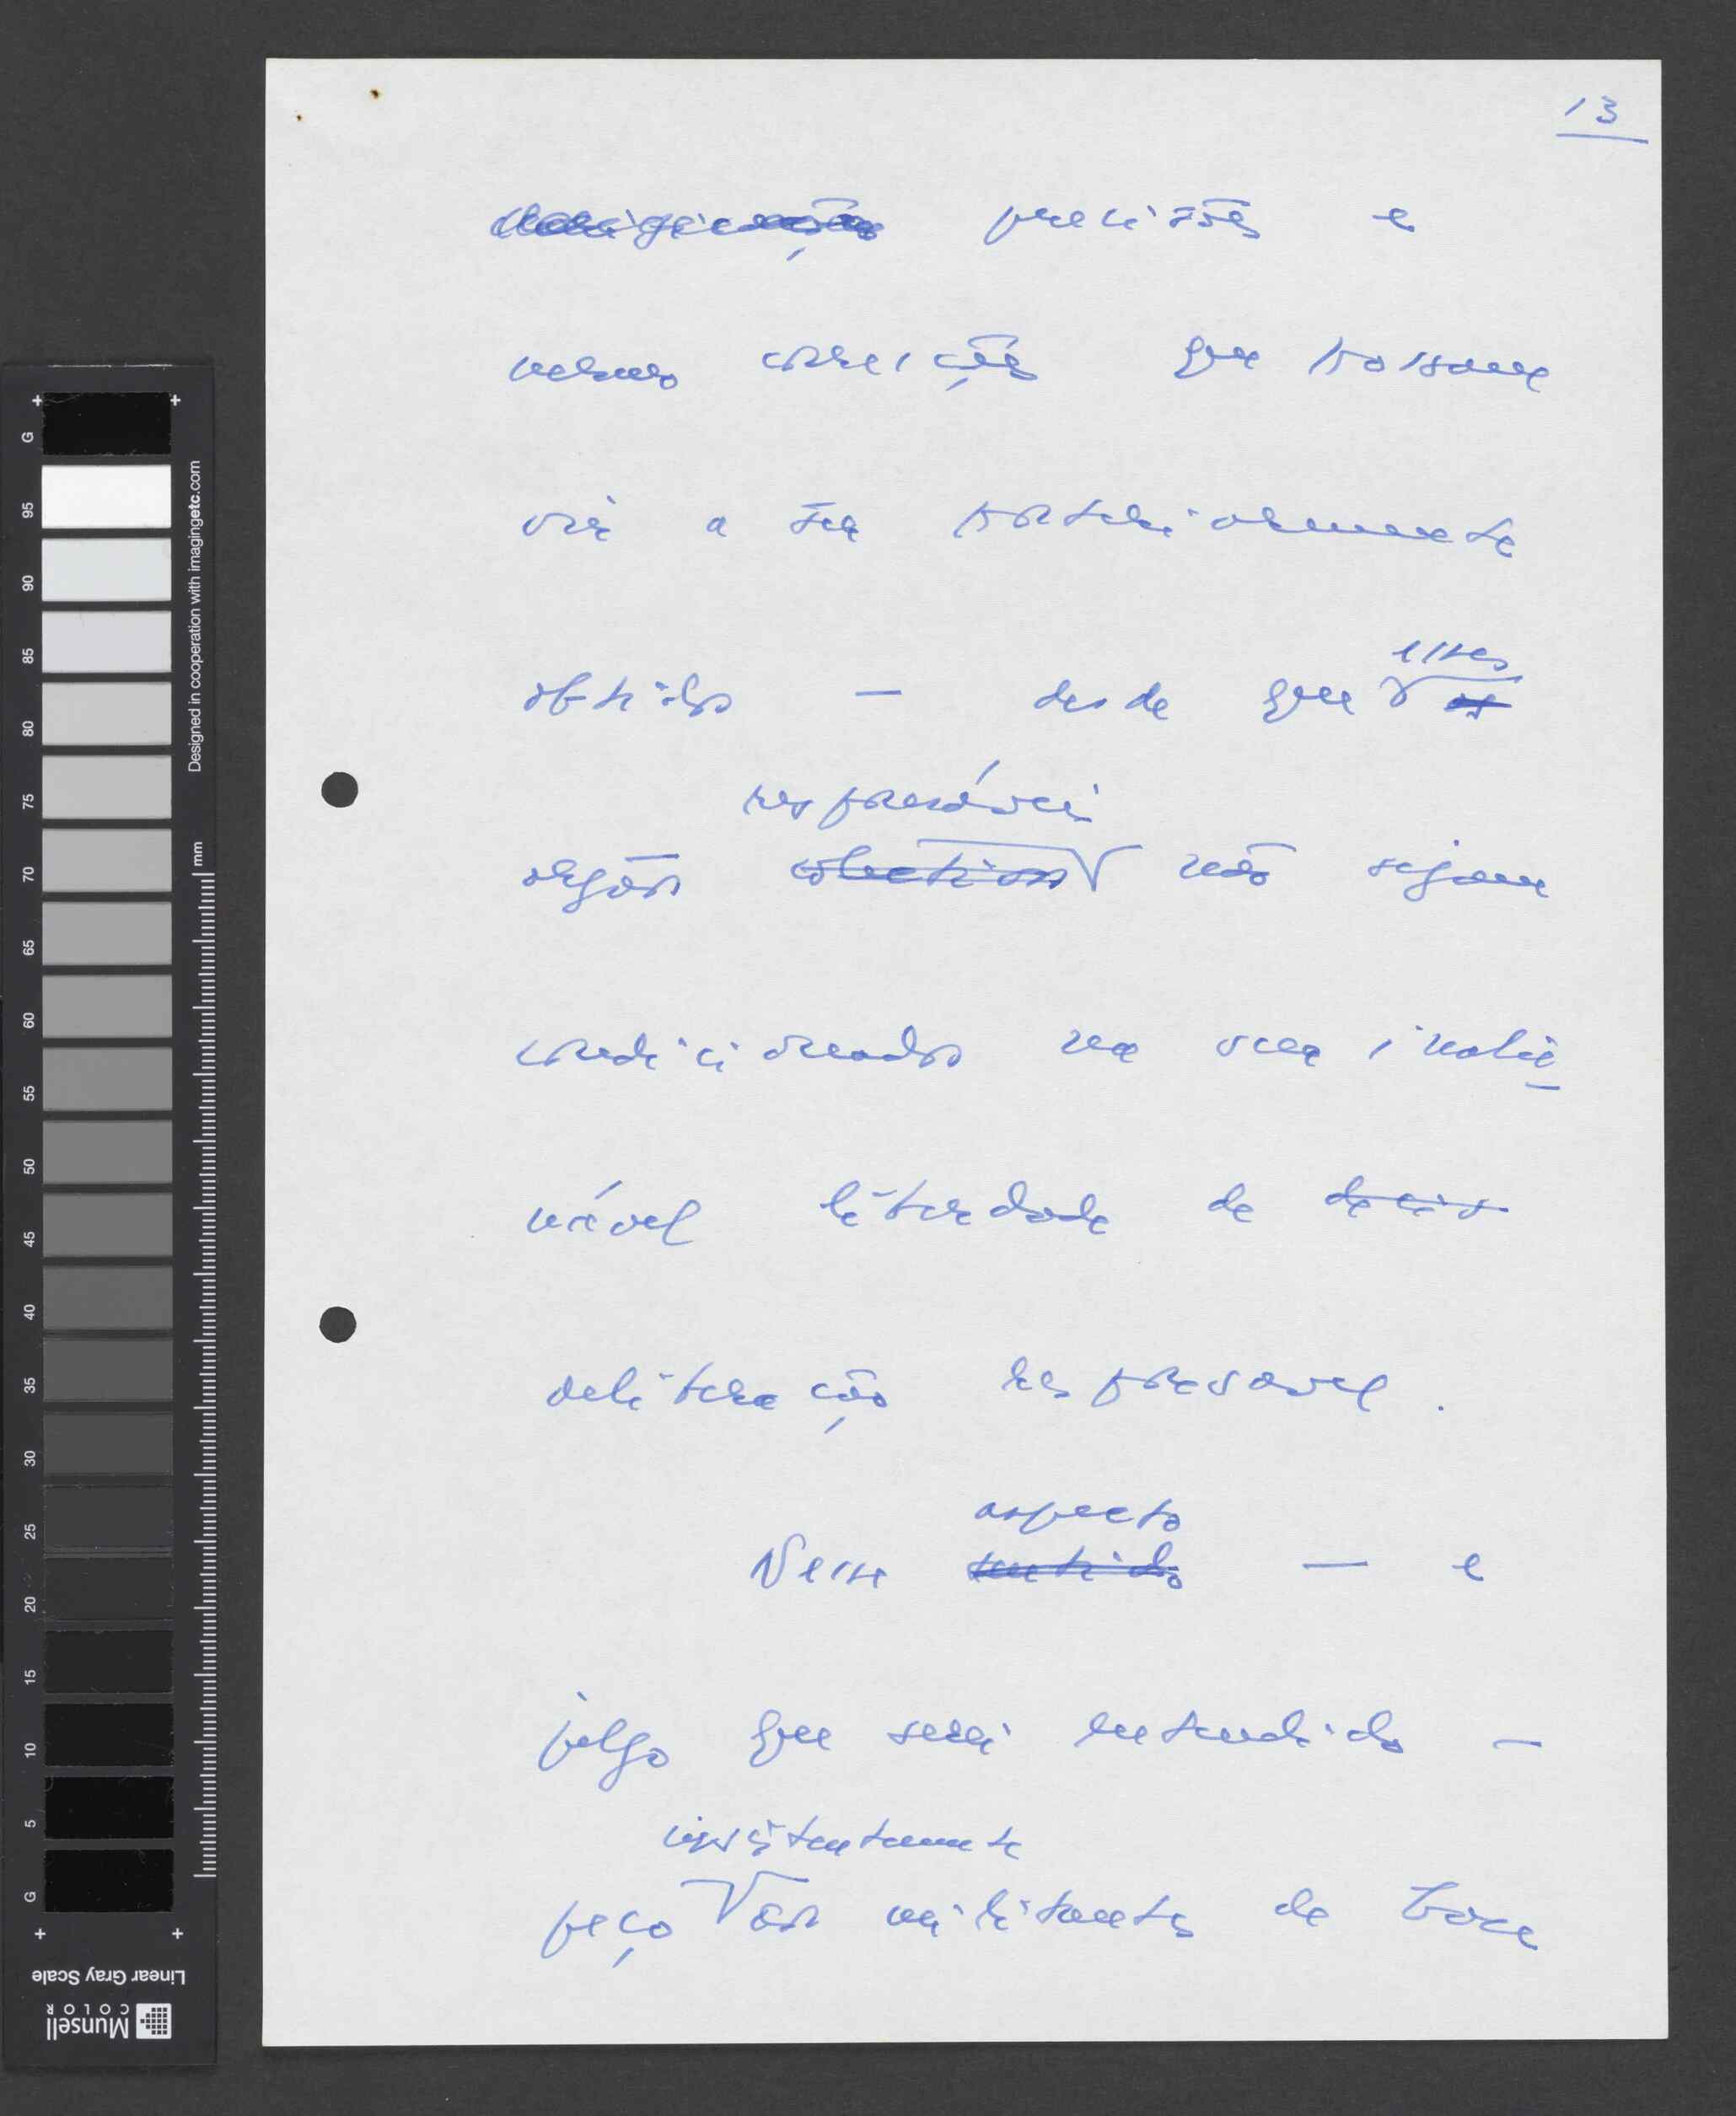 13
precisões e
mesmo correcções que possam
vir a ser posteriormente
obtidos — desde que esses os
responsáveis
orgãos colectivos não sejam
condicionados na sua inalie-
nável liberdade de decis
deliberação responsavel.
aspecto
Nesse sentido — e
julgo que serei entendido —
insistentemente
peço aos militantes de base
Designed in cooperation with imagingetc.com
mm
G 95 90 85 80 75 70 65 60 55 50 45 40 35 30 25 20 15 10 5 G
Linear Gray Scale
Munsell
COLOR